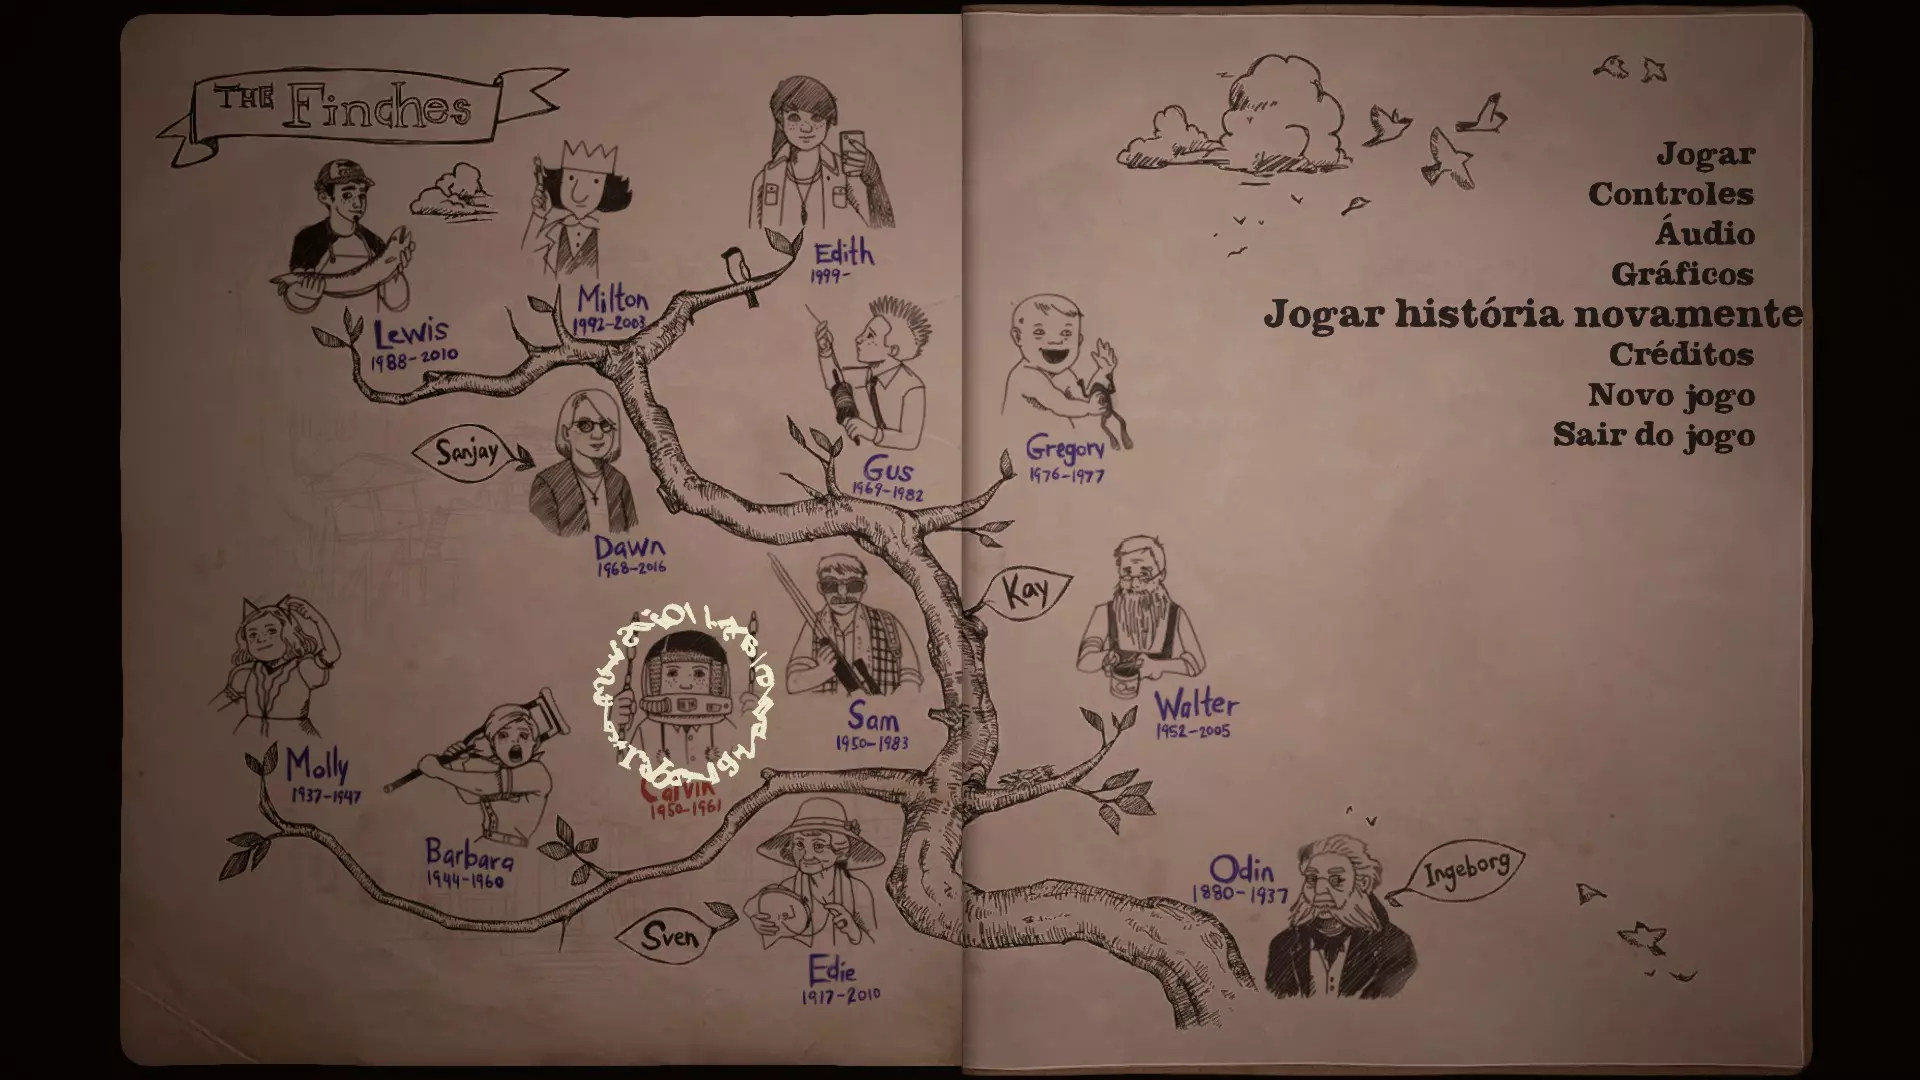 THE Finches
Edith
1999-
Milton
1992-2003
Lewis
1988-2010
Sanjay
Dawn
1968-2016
Gus
1969-1982
Gregory
1976-1977
Kay
Sam
1950-1983
Walter
1952-2005
Molly
1937-1947
Barbara
1944-1960
Calvin
1950-1961
Sven
Edie
1917-2010
Odin
1880-1937
Ingeborg
Jogar
Controles
Áudio
Gráficos
Jogar história novamente
Créditos
Novo jogo
Sair do jogo